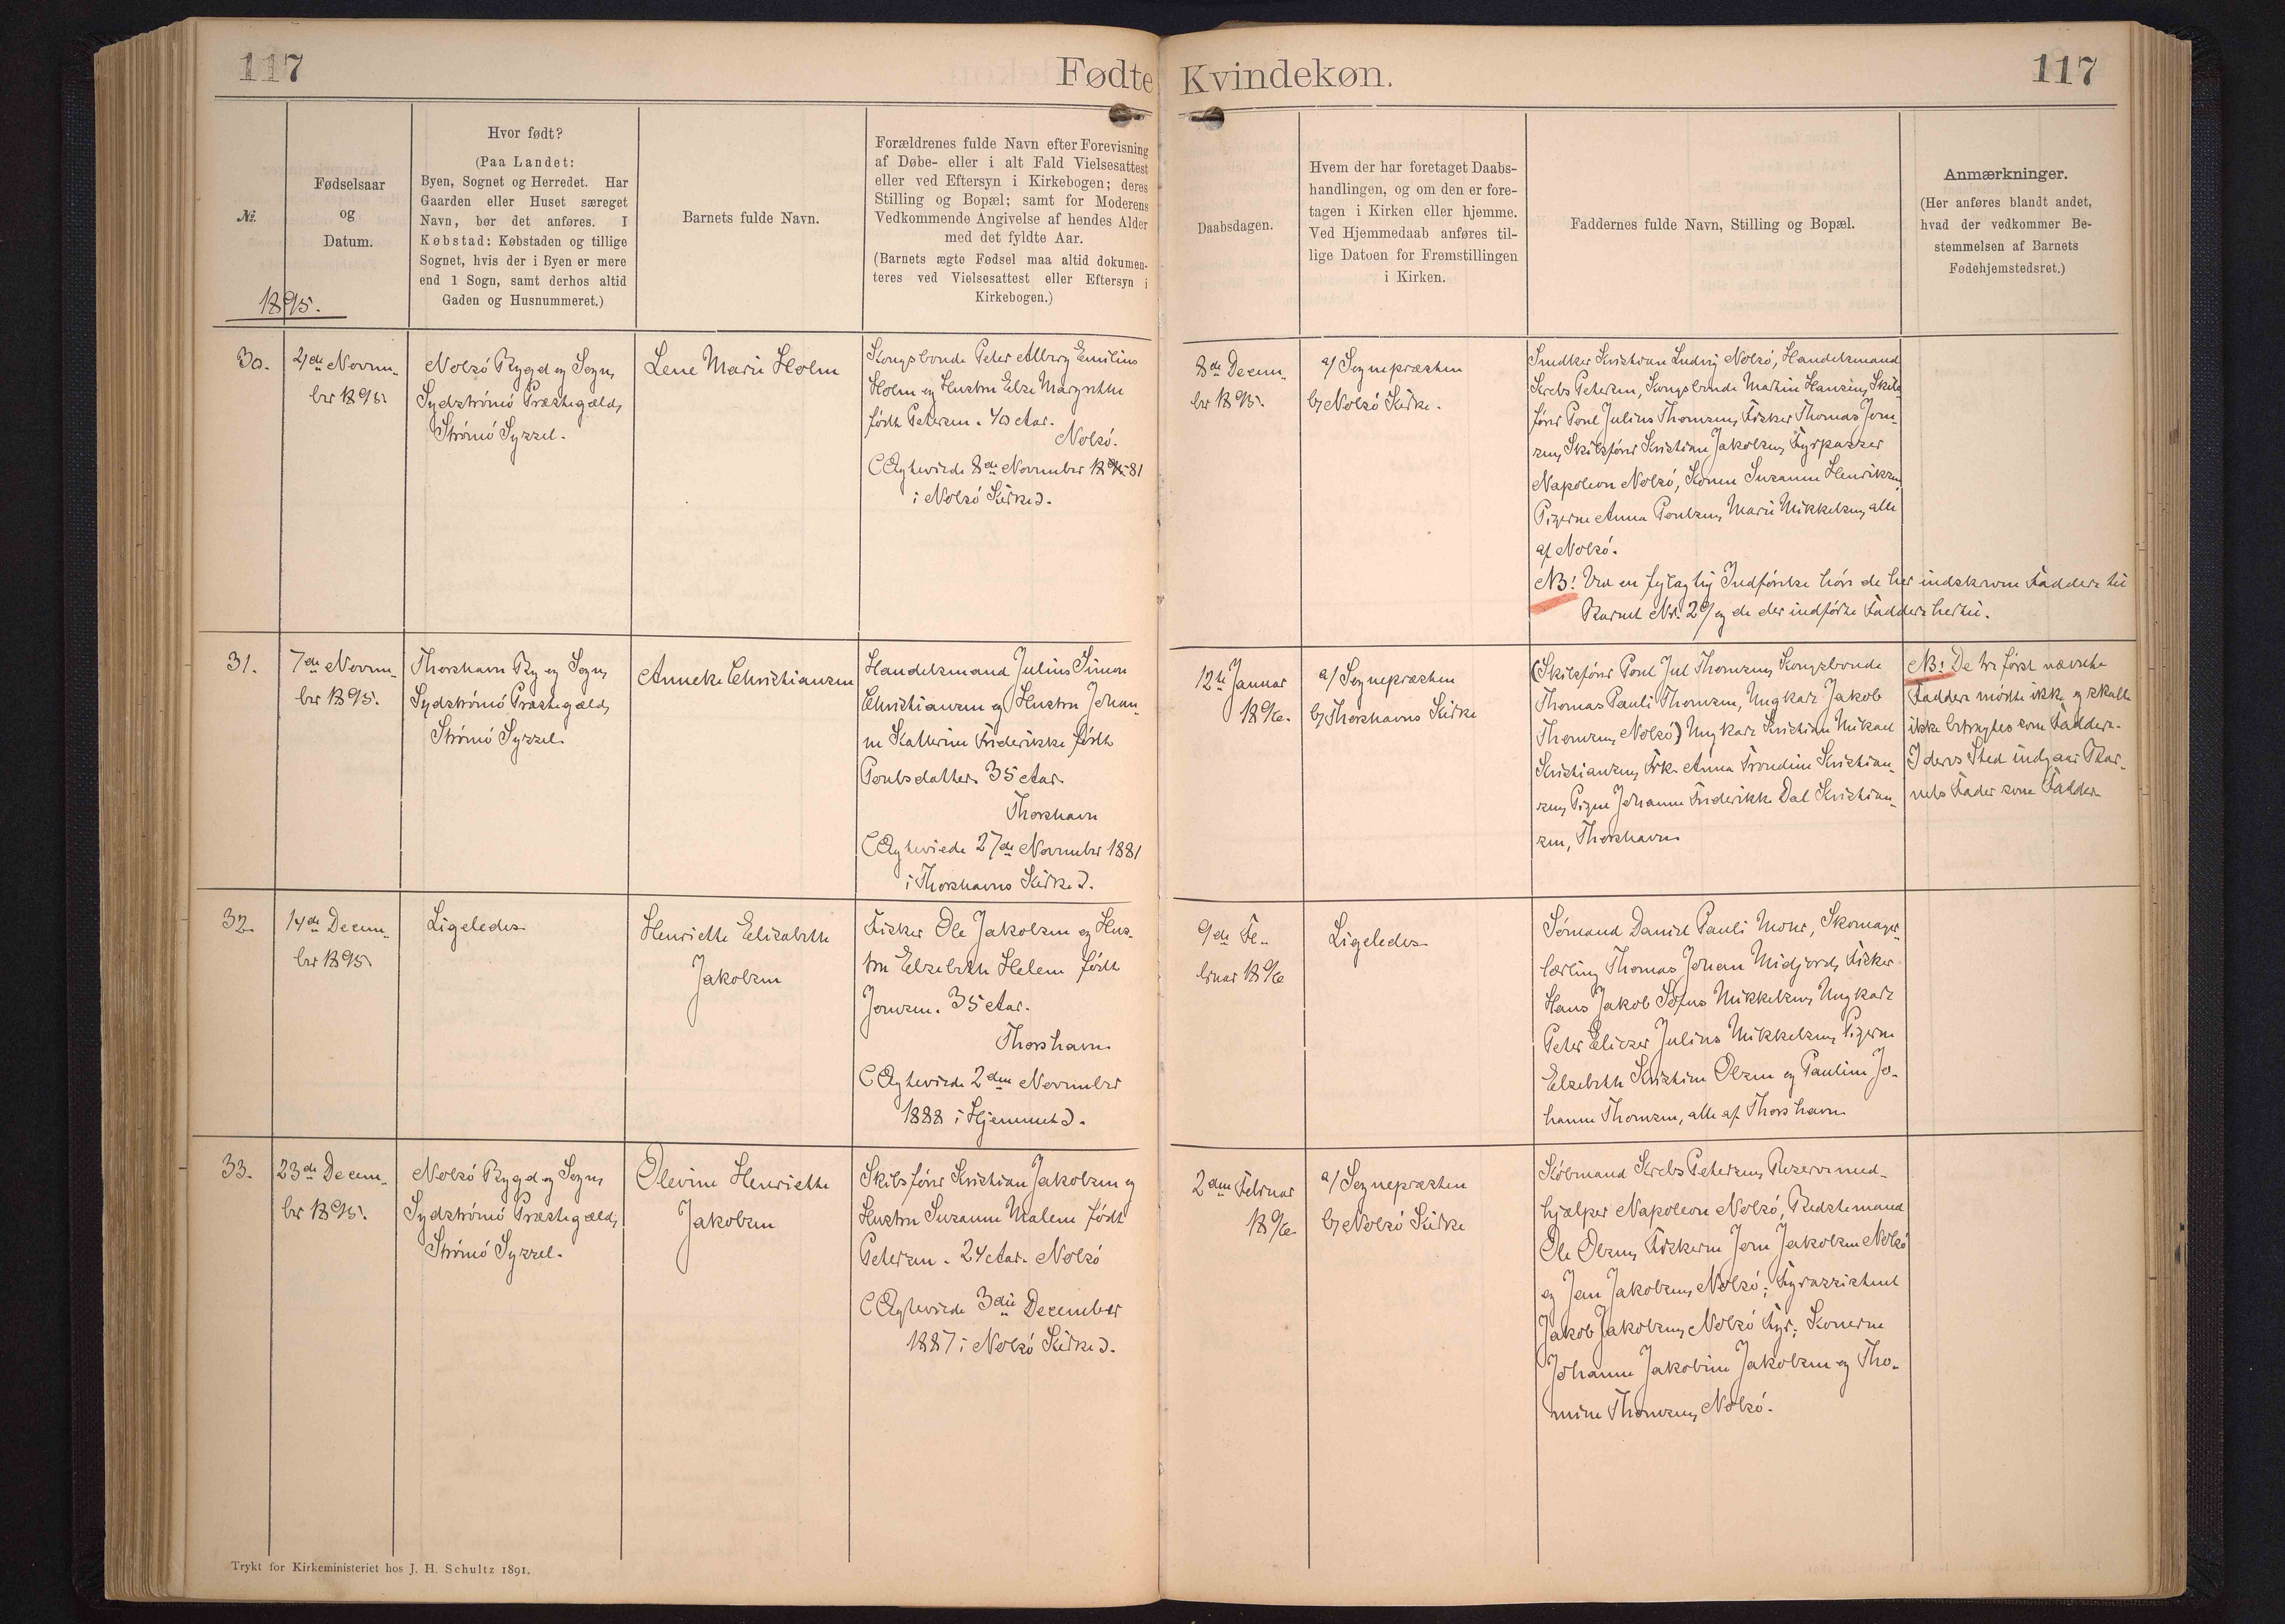 117
Fødte
Kvindekøn.
117
№.
1895.
Fødselsaar
og
Datum.
Hvor født?
(Paa Landet:
Byen, Sognet og Herredet. Har
Gaarden eller Huset særeget
Navn, bør det anføres. I
Købstad: Købstaden og tillige
Sognet, hvis der i Byen er mere
end 1 Sogn, samt derhos altid
Gaden og Husnummeret.)
Barnets fulde Navn.
Forældrenes fulde Navn efter Forevisning
af Døbe- eller i alt Fald Vielsesattest
eller ved Eftersyn i Kirkebogen; deres
Stilling og Bopæl; samt for Moderens
Vedkommende Angivelse af hendes Alder
med det fyldte Aar.
(Barnets ægte Fødsel maa altid dokumen-
teres ved Vielsesattest eller Eftersyn i
Kirkebogen.)
Daabsdagen.
Hvem der har foretaget Daabs-
handlingen, og om den er fore-
tagen i Kirken eller hjemme.
Ved Hjemmedaab anføres til-
lige Datoen for Fremstillingen
i Kirken.
Faddernes fulde Navn, Stilling og Bopæl.
Anmærkninger.
(Her anføres blandt andet,
hvad der vedkommer Be-
stemmelsen af Barnets
Fødehjemstedsret.)
30.
2de Novem-
ber 1895.
Nolsö Bygd og Sogn,
Sydströmö Præstegæld,
Strömö Syssel.
Lene Marie Holm
Kongsbonde Peter Alberg Emilius
Holm og Hustru Else Margrethe
födt Petersen. 40 Aar.
Nolsö.
(Ægteviede 8de November 1881
i Nolsö Kirke).
8de Decem-
ber 1895.
a/ Sognepræsten
b/ Nolsö Kirke.
Snedker Kristian Ludvig Nolsö, Handelsmand
Krebs Petersen, Kongsbonde Martin Hansen, Skibs-
förer Poul Julius Thomsen, Fisker Thomas Joen-
sen, Skibsförer Kristian Jakobsen, Fyrpasser
Napoleon Nolsö, Konen Susanne Henriksen,
Pigerne Anna Poulsen, Marie Mikkelsen, alle
af Nolsö.
NB! Ved en fejlagtig Indförelse höre de her indskrevne Faddere til
Barnet Nr. 29 og de der indförte Faddere hertil.
31.
7de Novem-
ber 1895.
Thorshavn By og Sogn,
Sydströmö Præstegæld,
Strömö Syssel.
Anneke Christiansen
Handelsmand Julius Simon
Christiansen og Hustru Johan-
ne Katherine Frederikke födt
Poulsdatter. 35 Aar.
Thorshavn
(Ægteviede 27de November 1881
i Thorshavns Kirke).
12te Januar
1896.
a/ Sognepræsten
b/ Thorshavns Kirke
(Skibsförer Poul Jul Thomsen, Kongsbonde
Thomas Pauli Thomsen, Ungkarl Jakob
Thomsen, Nolsö) Ungkarl Kristian Mikael
Kristiansen, Frk. Anna Trondine Kristian-
sen, Pigen Johanne Frederikke Dal Kristian-
sen, Thorshavn
NB! De tre först nævnte
Faddere mödte ikke og skulle
ikke betragtes som Faddere.
I deres Sted indgaar Bar-
nets Fader som Fadder.
32.
14de Decem-
ber 1895.
Ligeledes.
Henriette Elisabeth
Jakobsen
Fisker Ole Jakobsen og Hus-
tru Elsebeth Helene födt
Joensen. 35 Aar.
Thorshavn.
(Ægteviede 2den November
1888 i Hjemmet).
9de Fe-
bruar 1896
Ligeledes.
Sömand Daniel Pauli Mohr, Skomager-
lærling Thomas Johan Midjord, Fisker
Hans Jakob Sofus Mikkelsen, Ungkarl
Peter Eliezer Julius Mikkelsen, Pigerne
Elsebeth Kristine Olsen og Pauline Jo-
hanne Thomsen, alle af Thorshavn.
33.
23de Decem-
ber 1895.
Nolsö Bygd og Sogn,
Sydströmö Præstegæld,
Strömö Syssel.
Olevine Henriette
Jakobsen
Skibsförer Kristian Jakobsen og
Hustru Susanne Malene födt
Petersen. 24 Aar. Nolsö
(Ægteviede 3die December
1887 i Nolsö Kirke).
2den Februar
1896.
a/ Sognepræsten
b/ Nolsö Kirke
Köbmand Krebs Petersen, Reservemed-
hjælper Napoleon Nolsö, Bedstemand
Ole Olsen, Fiskerne Joen Jakobsen Nolsö
og Jan Jakobsen, Nolsö; Fyrassistent
Jakob Jakobsen, Nolsö Fyr; Konerne
Johanne Jakobine Jakobsen og Tho-
mine Thomsen, Nolsö.
Trykt for Kirkeministeriet hos J. H. Schultz 1891.